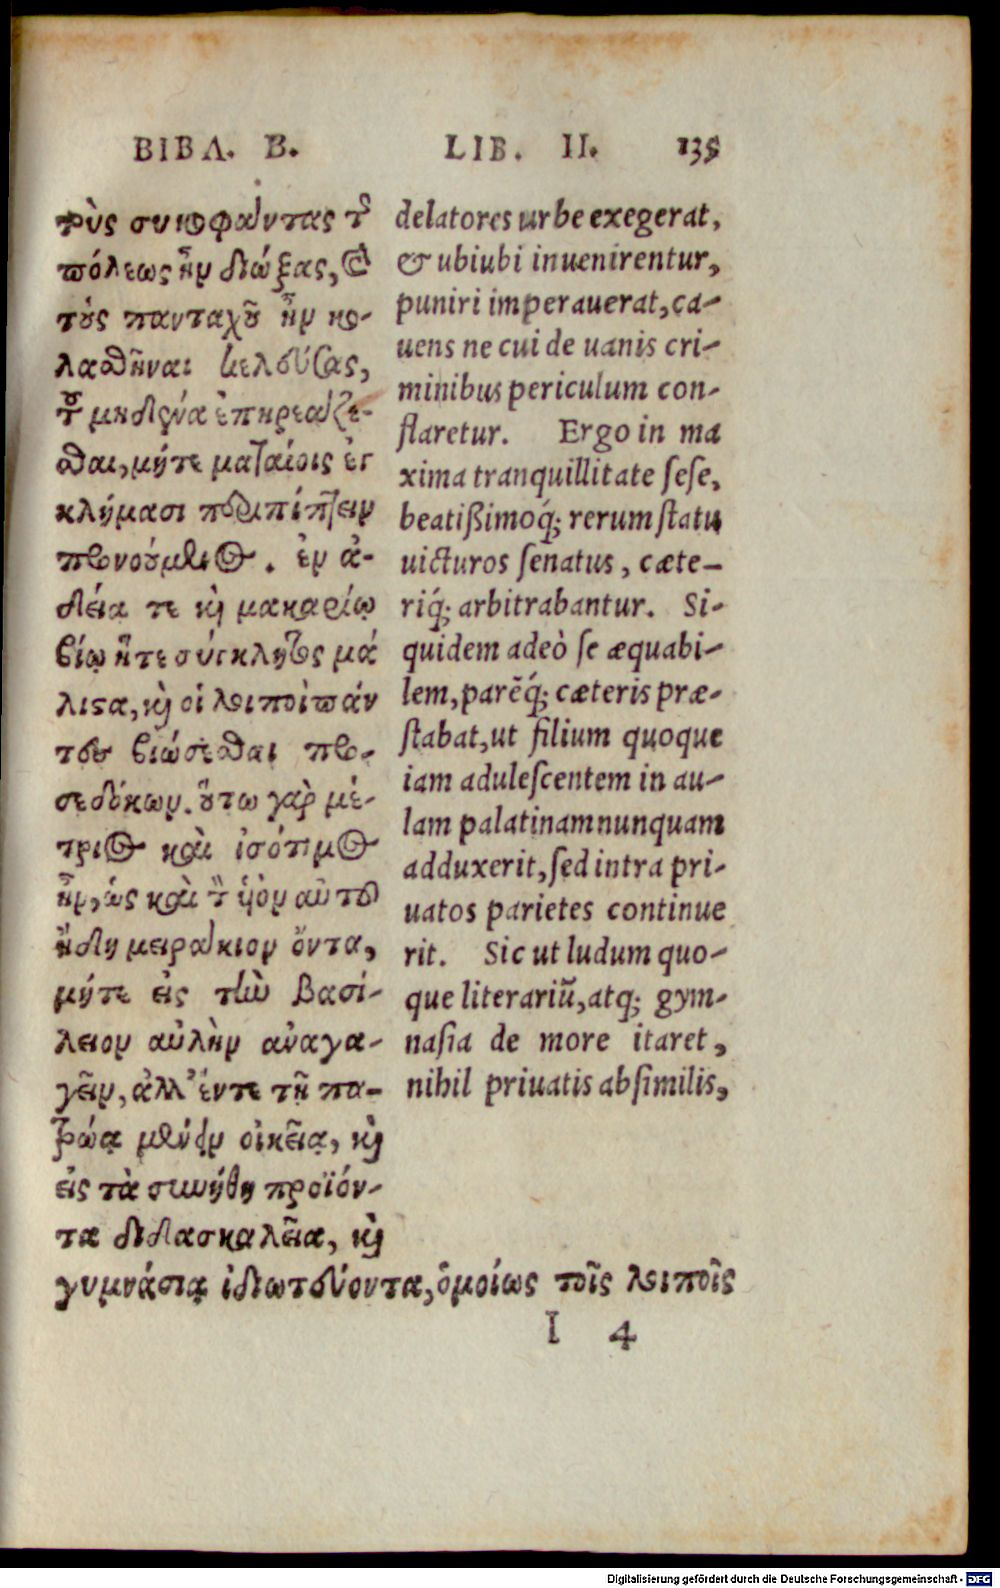 ΒΙΒΛ. Β.
τοὺς συκοφάντας τῆς
πόλεως ἦν διώξας, καὶ
τοὺς πανταχοῦ ἦν κο-
λασθῆναι κελεύσας,
τοῦ μηδένα ἐπηρεάζε-
σθαι, μήτε ματαίοις ἐγ
κλήμασι περιπίπτειν
προνοούμενος. ἐν ἀ-
δείᾳ τε καὶ μακαρίῳ
βίῳ ἥτε σύγκλητος μά
λιστα, καὶ οἱ λοιποὶ πάν
τες βιώσεσθαι προ-
σεδόκων. οὕτω γὰρ μέ-
τριος καὶ ἰσότιμος
ἦν, ὡς καὶ τὸν υἱὸν αὐτοῦ
ἤδη μειράκιον ὄντα,
μήτε εἰς τὴν βασί-
λειον αὐλὴν ἀναγα-
γεῖν, ἀλλ' ἔντε τῇ πα-
τρῴᾳ μένειν οἰκείᾳ, καὶ
εἰς τὰ συνήθη προϊόν-
τα διδασκαλεῖα, καὶ
γυμνάσια ἰδιωτεύοντα, ὁμοίως τοῖς λοιποῖς
LIB. II. 135
delatores urbe exegerat,
& ubiubi inuenirentur,
puniri imperauerat, ca-
uens ne cui de uanis cri-
minibus periculum con-
flaretur. Ergo in ma
xima tranquillitate sese,
beatißimoq́; rerum statu
uicturos senatus, cæte-
riq́; arbitrabantur. Si-
quidem adeò se æquabi-
lem, parẽq́; cæteris præ-
stabat, ut filium quoque
iam adulescentem in au-
lam palatinam nunquam
adduxerit, sed intra pri-
uatos parietes continue
rit. Sic ut ludum quo-
que literariũ, atq; gym-
nasia de more itaret,
nihil priuatis absimilis,
I 4
Digitalisierung gefördert durch die Deutsche Forschungsgemeinschaft - DFG